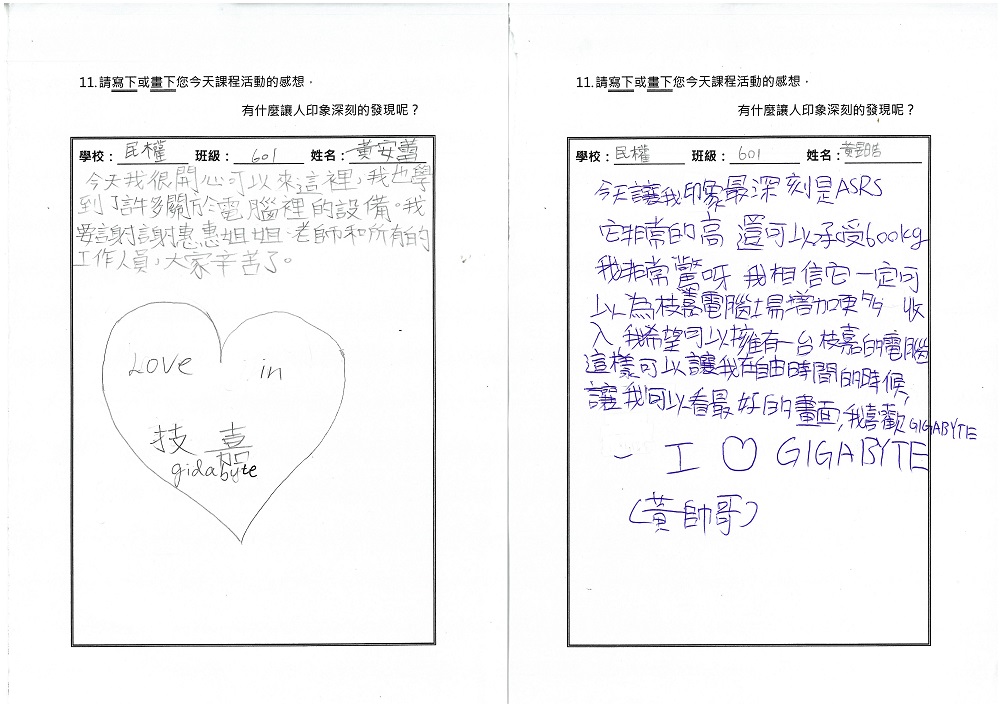 11.請寫下或畫下您今天課程活動的感想，
有什麼讓人印象深刻的發現呢？
學校：民權 班級：601 姓名：黃安蕾
今天我很開心可以來這裡，我也學
到了許多關於電腦裡的設備。我
要謝謝惠惠姐姐、老師和所有的
工作人員，大家辛苦了。
Love in
技嘉
gidabyte
11.請寫下或畫下您今天課程活動的感想，
有什麼讓人印象深刻的發現呢？
學校：民權 班級：601 姓名：黃
今天讓我印象最深刻是ASRS
它非常的高 還可以承受600kg
我非常驚呀 我相信它一定可
以為枝嘉電腦場增加更多 收
入 我希望可以擁有一台枝嘉的電腦
這樣可以讓我在自由時間的時候，
讓我可以看最好的畫面，我喜歡GIGABYTE
- I ♡ GIGABYTE
(黃帥哥)